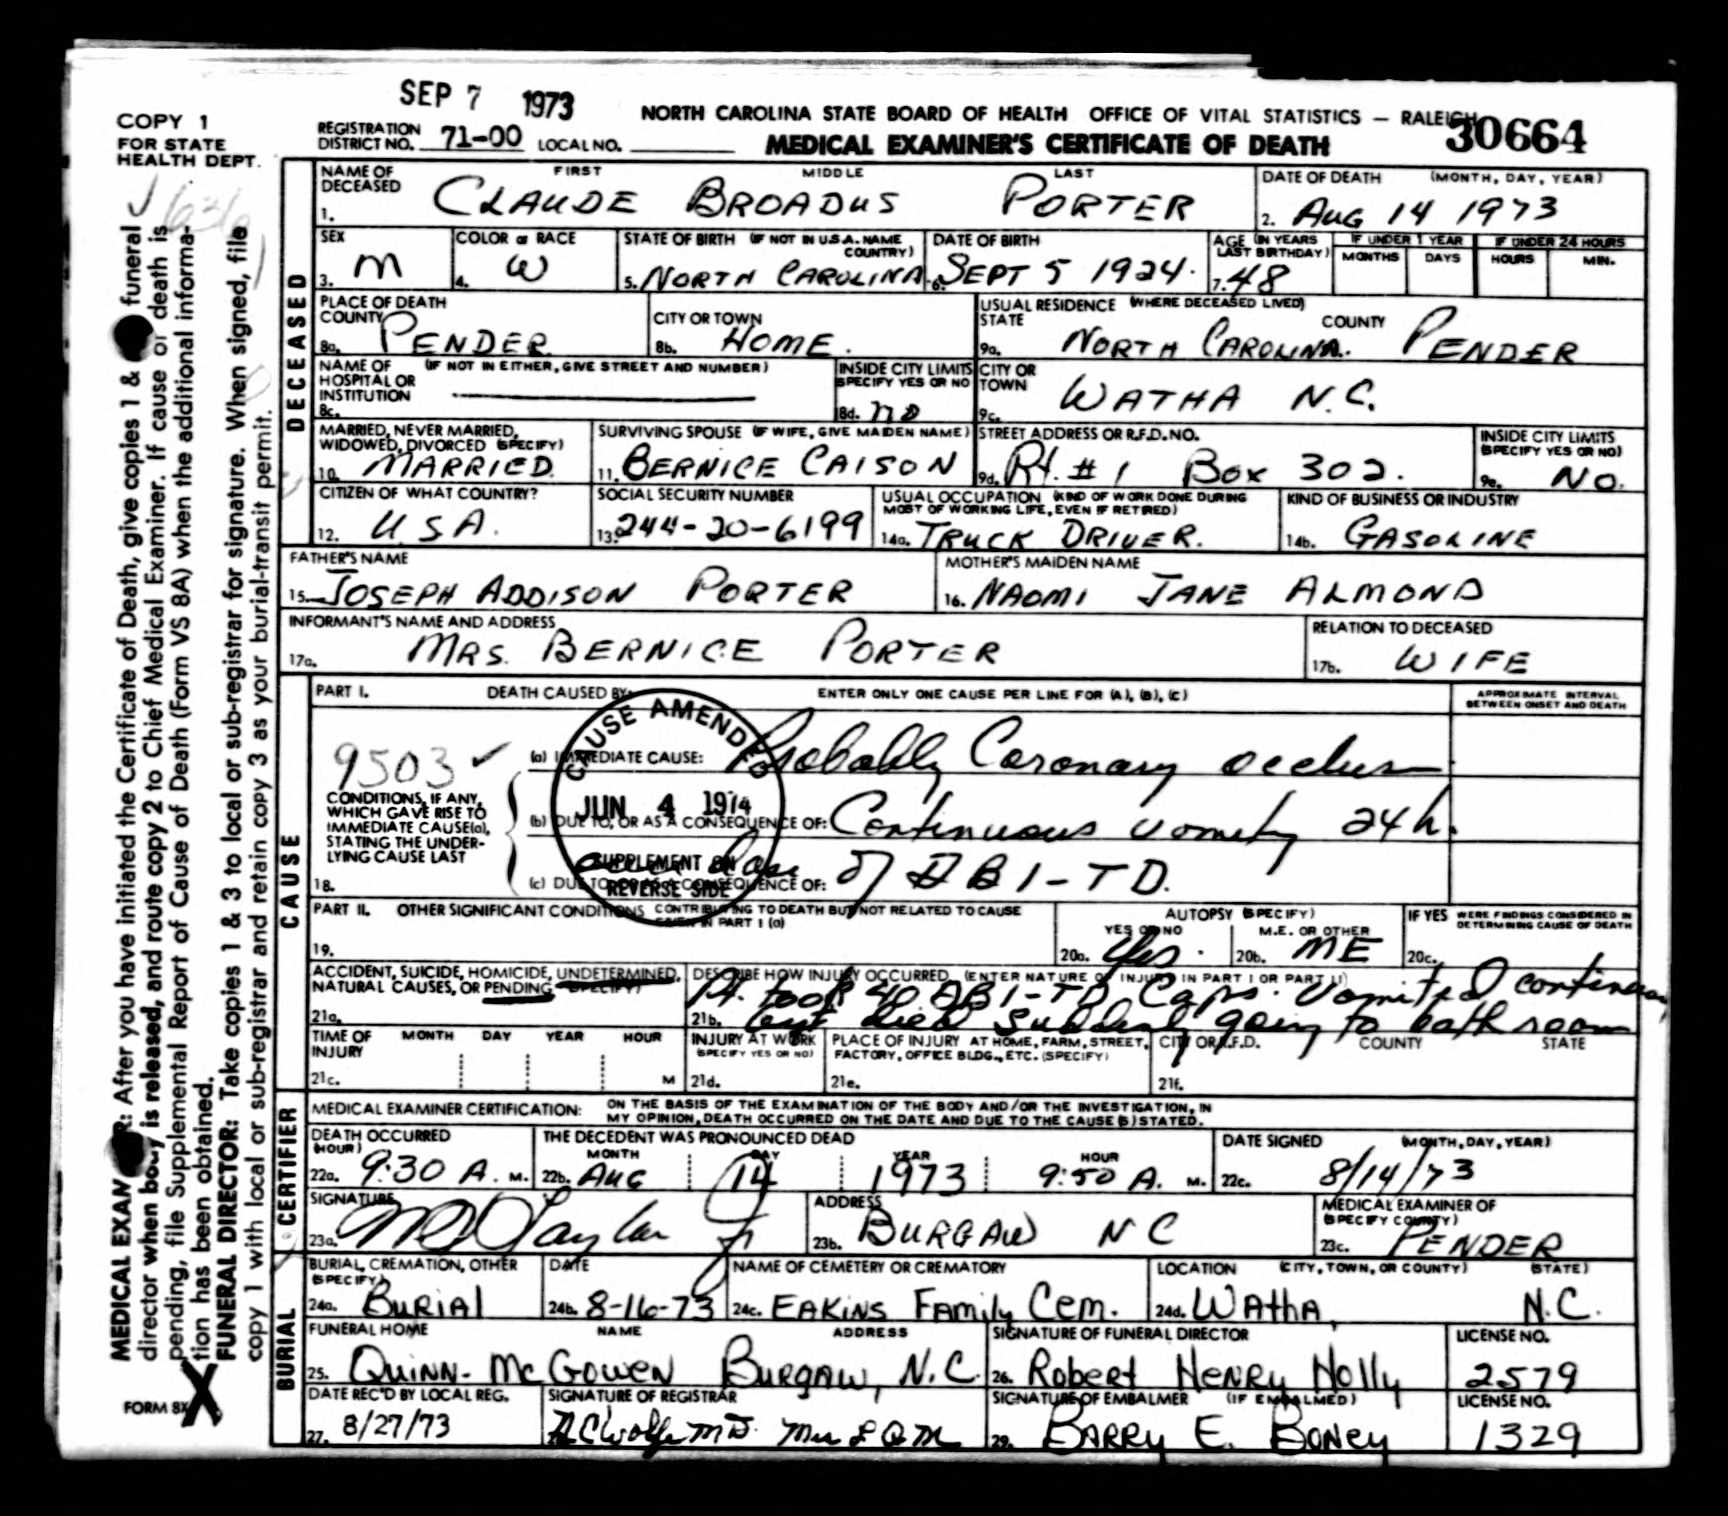 SEP 7 1973
COPY 1
FOR STATE
HEALTH DEPT.
NORTH CAROLINA STATE BOARD OF HEALTH OFFICE OF VITAL STATISTICS — RALEIGH
REGISTRATION DISTRICT NO. 71-00 LOCAL NO.
MEDICAL EXAMINER'S CERTIFICATE OF DEATH
30664
MEDICAL EXAMINER: After you have initiated the Certificate of Death, give copies 1 & funeral
director when body is released, and route copy 2 to Chief Medical Examiner. If cause of death is
pending, file Supplemental Report of Cause of Death (Form VS 8A) when the additional informa-
tion has been obtained.
FUNERAL DIRECTOR: Take copies 1 & 3 to local or sub-registrar for signature. When signed, file
copy 1 with local or sub-registrar and retain copy 3 as your burial-transit permit.
FORM 8X
DECEASED
NAME OF DECEASED FIRST MIDDLE LAST
1. CLAUDE BROADUS PORTER
DATE OF DEATH (MONTH, DAY, YEAR)
2. AUG 14 1973
SEX
3. M
COLOR or RACE
4. W
STATE OF BIRTH (IF NOT IN U.S.A. NAME COUNTRY)
5. NORTH CAROLINA
DATE OF BIRTH
6. SEPT 5 1924.
AGE (IN YEARS LAST BIRTHDAY)
7. 48
IF UNDER 1 YEAR
MONTHS DAYS
IF UNDER 24 HOURS
HOURS MIN.
PLACE OF DEATH
COUNTY
8a. PENDER
CITY OR TOWN
8b. HOME.
USUAL RESIDENCE (WHERE DECEASED LIVED)
STATE COUNTY
9a. NORTH CAROLINA. PENDER
NAME OF HOSPITAL OR INSTITUTION (IF NOT IN EITHER, GIVE STREET AND NUMBER)
8c.
INSIDE CITY LIMITS SPECIFY YES OR NO
8d. NO
CITY OR TOWN
9c. WATHA N.C.
MARRIED, NEVER MARRIED, WIDOWED, DIVORCED (SPECIFY)
10. MARRIED.
SURVIVING SPOUSE (IF WIFE, GIVE MAIDEN NAME)
11. BERNICE CAISON
STREET ADDRESS OR R.F.D. NO.
9d. Rt. # 1 Box 302.
INSIDE CITY LIMITS (SPECIFY YES OR NO)
9e. NO.
CITIZEN OF WHAT COUNTRY?
12. U.S.A.
SOCIAL SECURITY NUMBER
13. 244-20-6199
USUAL OCCUPATION (KIND OF WORK DONE DURING MOST OF WORKING LIFE, EVEN IF RETIRED)
14a. TRUCK DRIVER.
KIND OF BUSINESS OR INDUSTRY
14b. GASOLINE
FATHER'S NAME
15. JOSEPH ADDISON PORTER
MOTHER'S MAIDEN NAME
16. NAOMI JANE ALMOND
INFORMANT'S NAME AND ADDRESS
17a. MRS. BERNICE PORTER
RELATION TO DECEASED
17b. WIFE
CAUSE
PART I. DEATH CAUSED BY: ENTER ONLY ONE CAUSE PER LINE FOR (A), (B), (C)
APPROXIMATE INTERVAL BETWEEN ONSET AND DEATH
9503 ✓
CONDITIONS, IF ANY, WHICH GAVE RISE TO IMMEDIATE CAUSE(a), STATING THE UNDER-LYING CAUSE LAST
18.
(a) IMMEDIATE CAUSE: Probably Coronary occlusion
(b) DUE TO, OR AS A CONSEQUENCE OF: Continuous vomity 24 h.
(c) DUE TO, OR AS A CONSEQUENCE OF: over dose of DBI-TD.
CAUSE AMENDED
JUN 4 1974
SUPPLEMENT ON
REVERSE SIDE
PART II. OTHER SIGNIFICANT CONDITIONS CONTRIBUTING TO DEATH BUT NOT RELATED TO CAUSE GIVEN IN PART I (a)
19.
AUTOPSY (SPECIFY)
YES OR NO
20a. Yes.
M.E. OR OTHER
20b. ME
IF YES WERE FINDINGS CONSIDERED IN DETERMINING CAUSE OF DEATH
20c.
ACCIDENT, SUICIDE, HOMICIDE, UNDETERMINED, NATURAL CAUSES, OR PENDING (SPECIFY)
21a.
DESCRIBE HOW INJURY OCCURRED (ENTER NATURE OF INJURY IN PART I OR PART II)
21b. Pt. took 40 DBI-TD Caps. Vomited continuously
but died suddenly going to bathroom
TIME OF INJURY MONTH DAY YEAR HOUR
21c. M
INJURY AT WORK (SPECIFY YES OR NO)
21d.
PLACE OF INJURY AT HOME, FARM, STREET, FACTORY, OFFICE BLDG., ETC. (SPECIFY)
21e.
CITY OR R.F.D. COUNTY STATE
21f.
CERTIFIER
MEDICAL EXAMINER CERTIFICATION: ON THE BASIS OF THE EXAMINATION OF THE BODY AND/OR THE INVESTIGATION, IN MY OPINION, DEATH OCCURRED ON THE DATE AND DUE TO THE CAUSE(S) STATED.
DEATH OCCURRED (HOUR)
22a. 9:30 A. M.
THE DECEDENT WAS PRONOUNCED DEAD
MONTH DAY YEAR HOUR
22b. AUG 14 1973 9:50 A. M.
DATE SIGNED (MONTH, DAY, YEAR)
22c. 8/14/73
SIGNATURE
23a. Taylor Jr
ADDRESS
23b. BURGAW N C
MEDICAL EXAMINER OF (SPECIFY COUNTY)
23c. PENDER
BURIAL
BURIAL, CREMATION, OTHER (SPECIFY)
24a. BURIAL
DATE
24b. 8-16-73
NAME OF CEMETERY OR CREMATORY
24c. EAKINS FAMILY CEM.
LOCATION (CITY, TOWN, OR COUNTY) (STATE)
24d. WATHA, N.C.
FUNERAL HOME NAME ADDRESS
25. QUINN-MCGOWEN BURGAW, N.C.
SIGNATURE OF FUNERAL DIRECTOR
26. Robert Henry Holly
LICENSE NO.
2579
DATE REC'D BY LOCAL REG.
27. 8/27/73
SIGNATURE OF REGISTRAR
SIGNATURE OF EMBALMER (IF EMBALMED)
29. BARRY E. BONEY
LICENSE NO.
1329